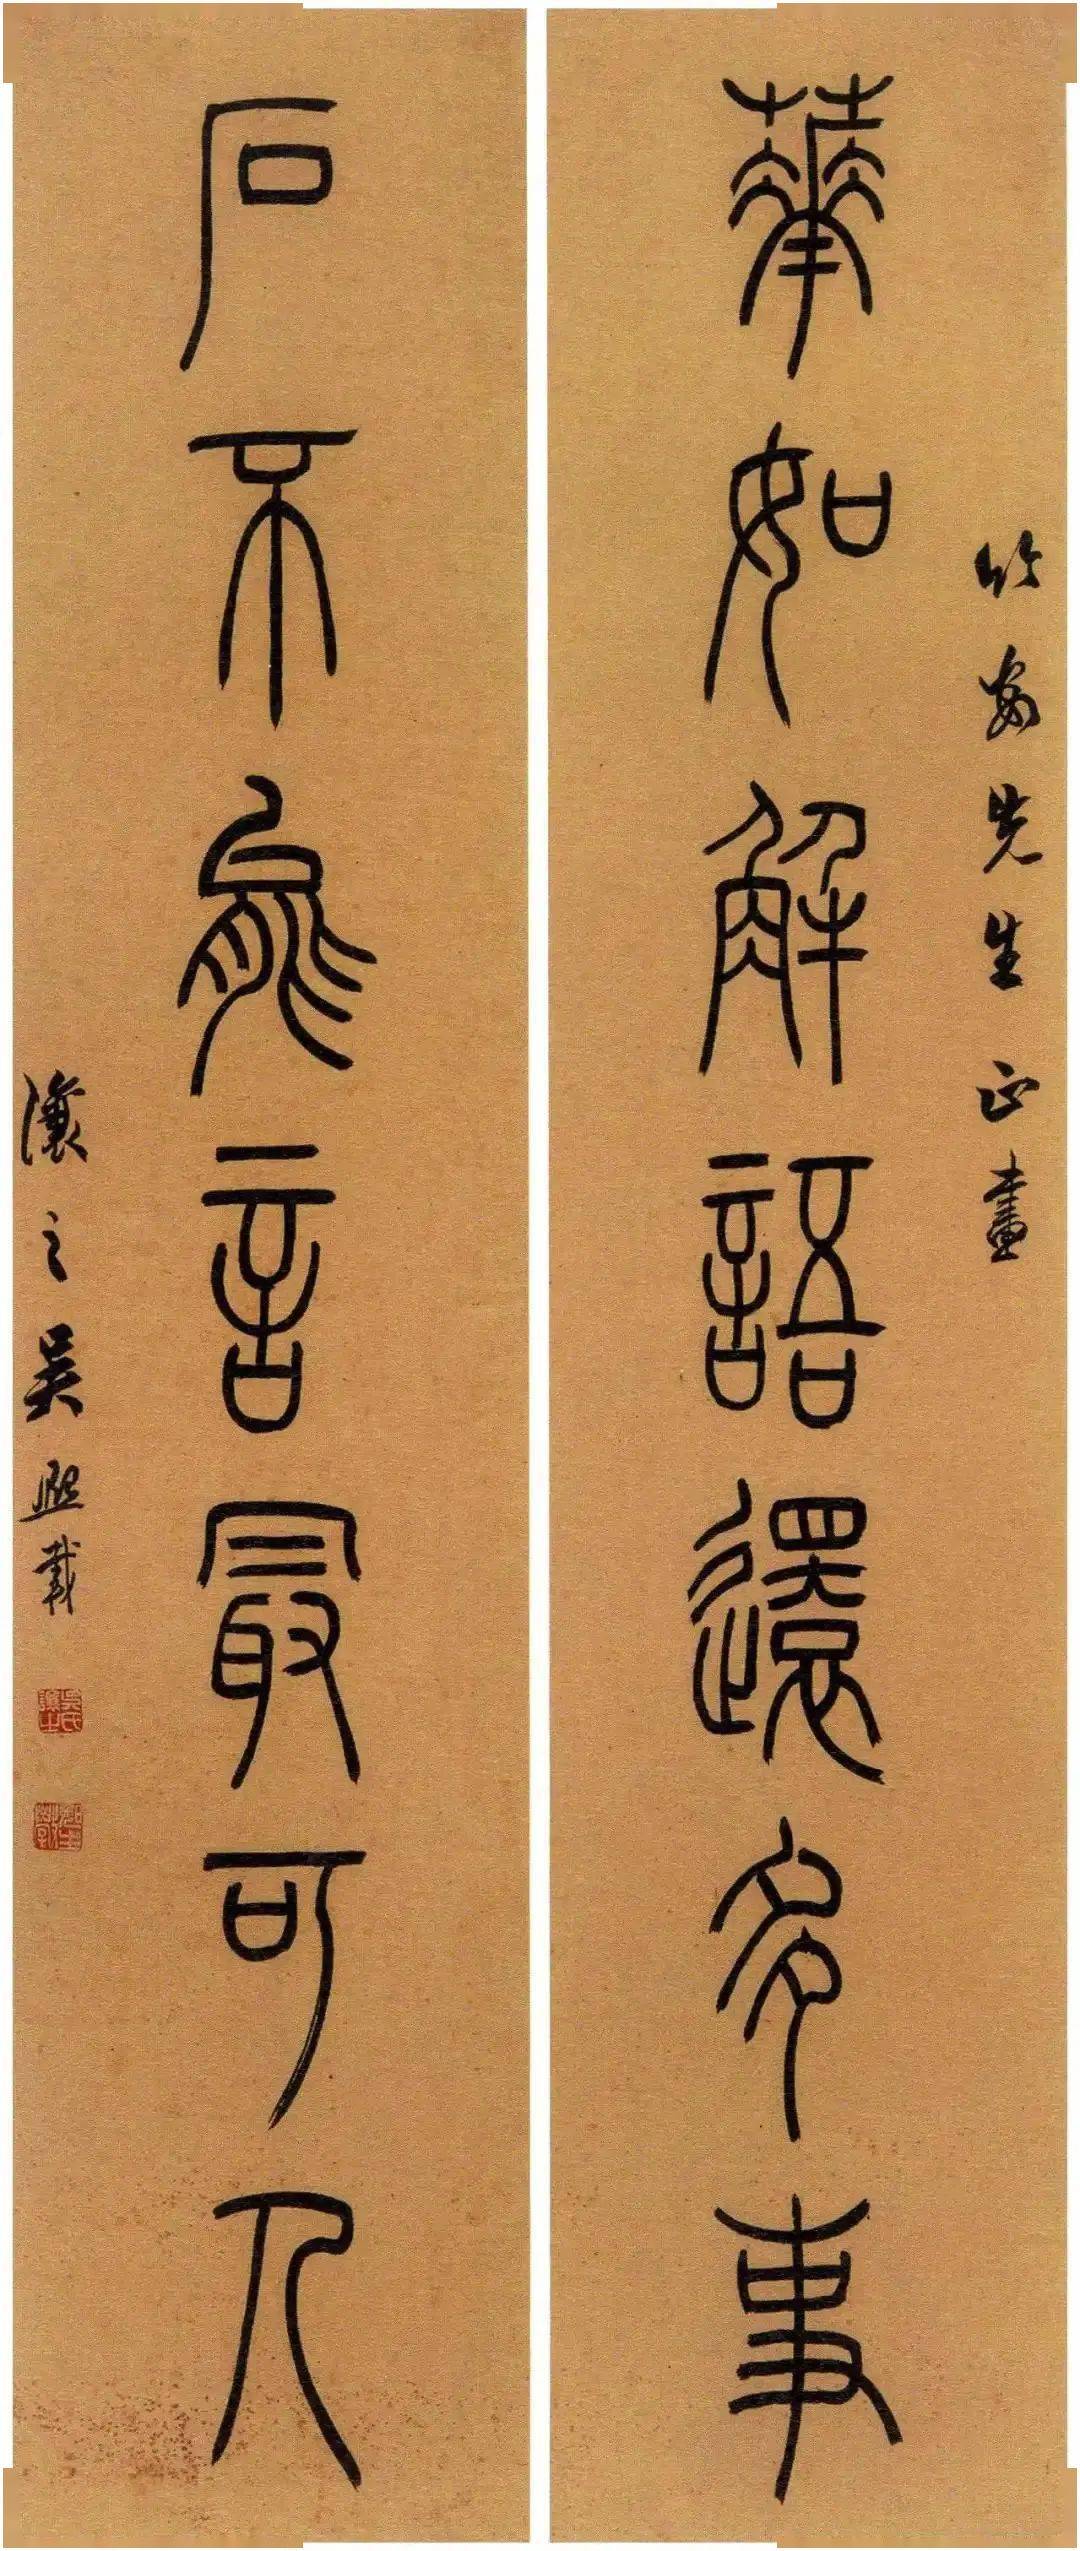 竹安先生正畫
華如解語還多事
石不能言最可人
讓之吳熙載